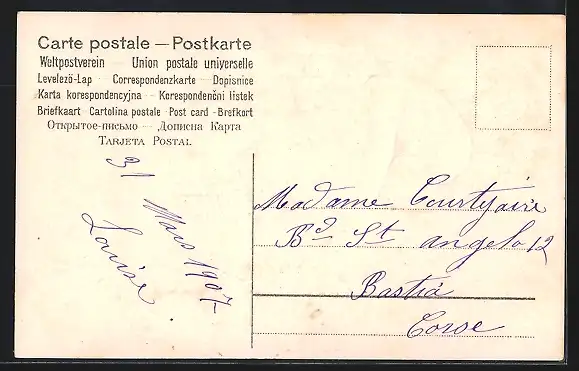 Carte postale — Postkarte
Weltpostverein — Union postale universelle
Levelező-Lap — Correspondenzkarte — Dopisnice
Karta korespondencyjna — Korespondenční lístek
Briefkaart - Cartolina postale - Post card - Brefkort
Открытое-письмо — Дописна Карта
Tarjeta Postal
31 Mars 1907
Louise
Madame Courtyaire
Bd St angelo 12
Bastia
Corse